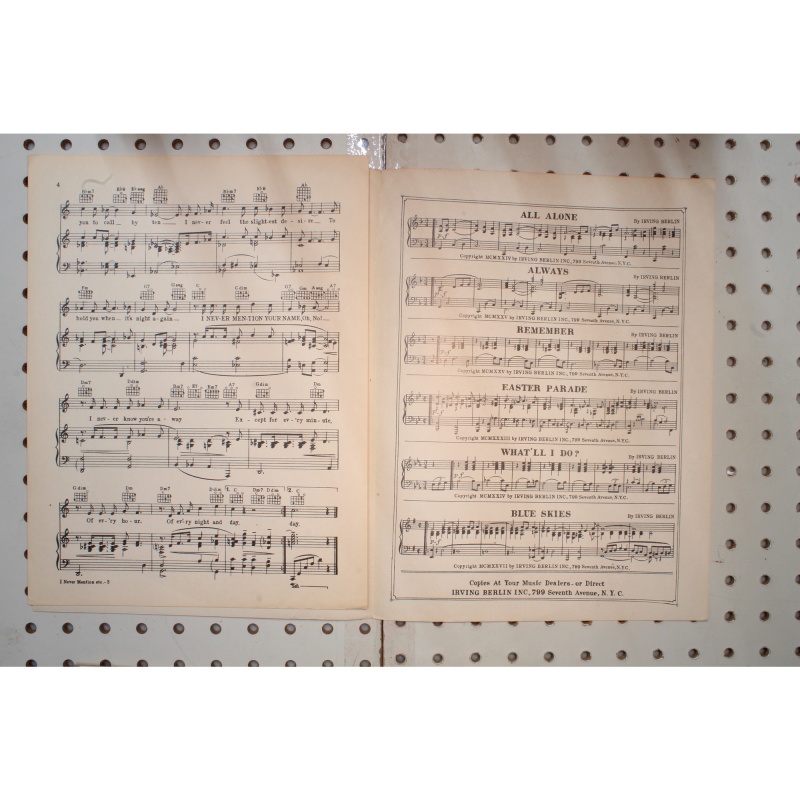 4
you to call by ten I nev-er feel the slight-est de-sire To
hold you when it's night a-gain I NEV-ER MEN-TION YOUR NAME, Oh, No!
Dm7
I nev-er know you're a-way Ex-cept for ev-'ry min-ute,
Gdim Dm Dm7
Of ev-'ry hour. Of ev-'ry night and day. day.
I Never Mention etc.- 3
ALL ALONE
By IRVING BERLIN
Copyright MCMXXIV by IRVING BERLIN INC., 799 Seventh Avenue, N.Y.C.
ALWAYS
By IRVING BERLIN
Copyright MCMXXV by IRVING BERLIN INC., 799 Seventh Avenue, N.Y.C.
REMEMBER
By IRVING BERLIN
Copyright MCMXXV by IRVING BERLIN INC., 799 Seventh Avenue, N.Y.C.
EASTER PARADE
By IRVING BERLIN
Copyright MCMXXXIII by IRVING BERLIN INC., 799 Seventh Avenue, N.Y.C.
WHAT'LL I DO?
By IRVING BERLIN
Copyright MCMXXIV by IRVING BERLIN INC., 799 Seventh Avenue, N.Y.C.
BLUE SKIES
By IRVING BERLIN
Copyright MCMXXVII by IRVING BERLIN INC., 799 Seventh Avenue, N.Y.C.
Copies At Your Music Dealers - or Direct
IRVING BERLIN INC., 799 Seventh Avenue, N. Y. C.